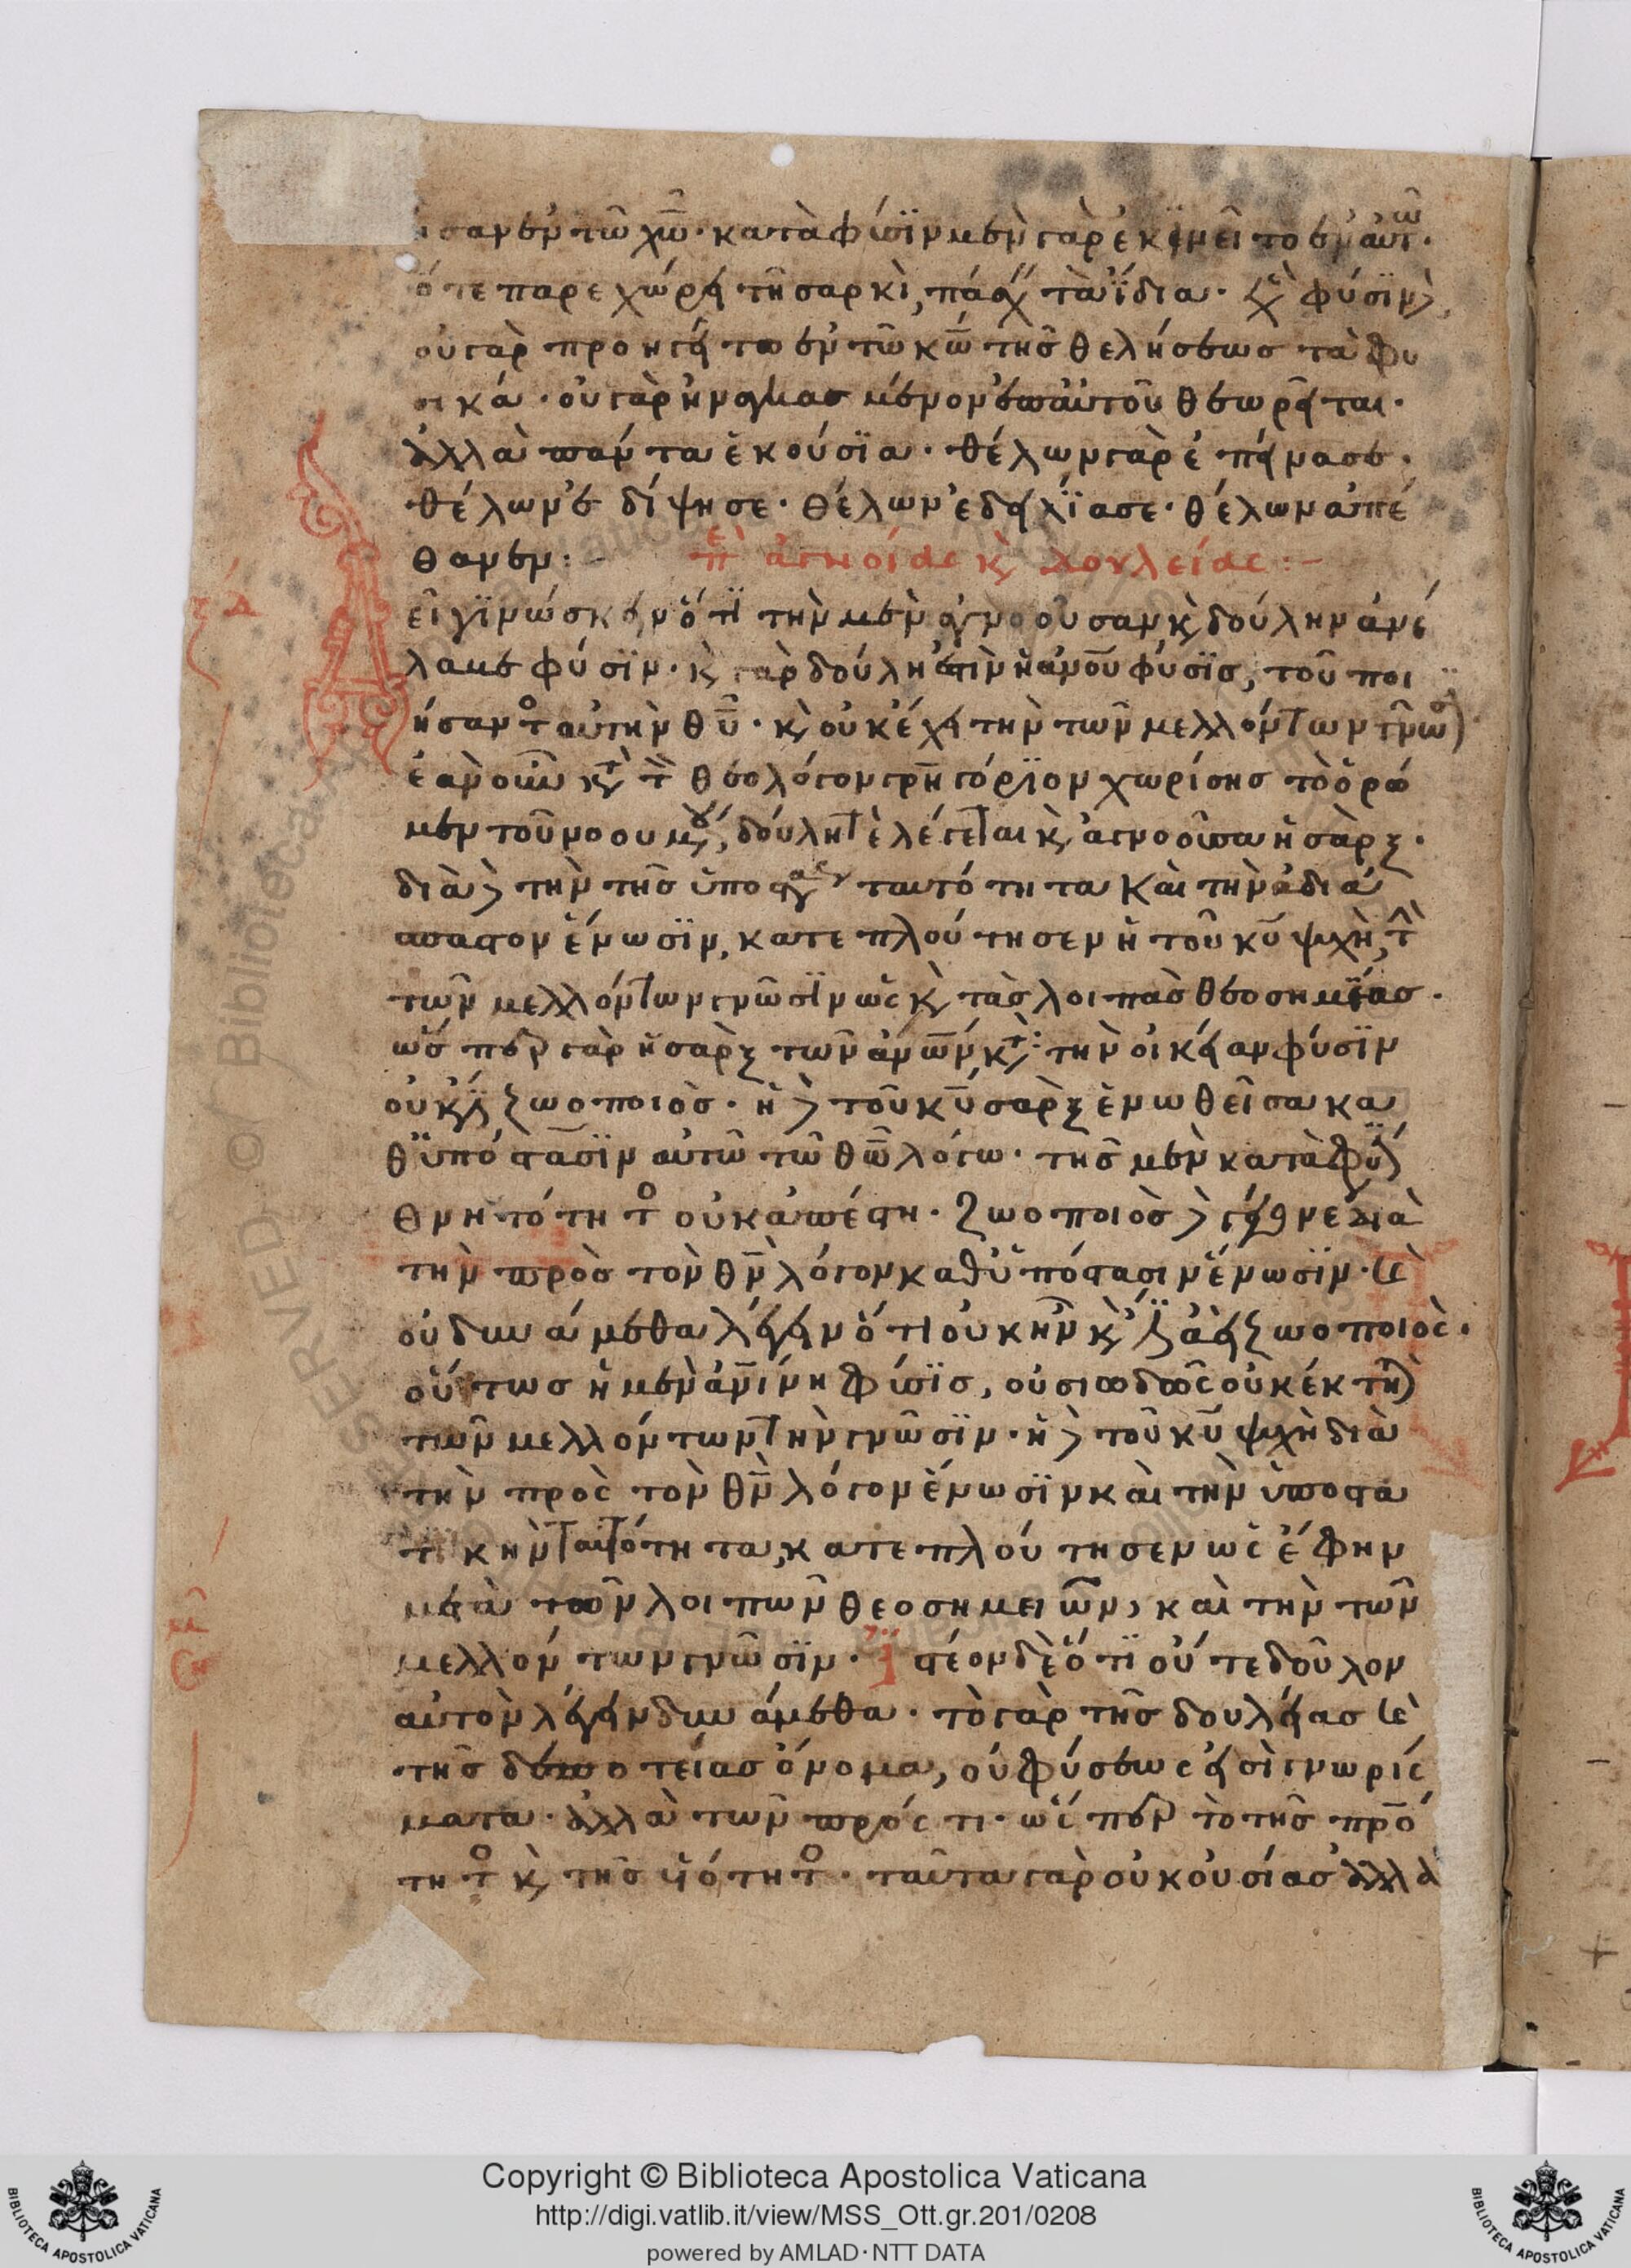 ἦσαν ἐν τῶ χω̅· κατὰ φύσϊν μὲν γὰρ ἐκϊνεῖτο ἐν αὐτῶ·
ὅτε παρεχώρει τῆ σαρκὶ, πάσχειν τὰ ἴδια· κ(αὶ) φύσϊν δὲ,
οὐ γὰρ προηγεῖτο ἐν τῶ κω̅ τῆς θελήσεως τὰ φυ
σικά· οὐ γὰρ ἠναγκασμένον ἐπ αὐτοῦ θεωρεῖται·
ἀλλὰ πάντα ἑκούσϊα· θέλων γὰρ ἐπείνασε·
θέλων ἐδίψησε· θέλων ἐδειλίασε· θέλων ἀπέ
θανεν:
περὶ ἀγνοίας κ(αὶ) δουλείας:
εῖ γϊνώσκειν ὅτι τὴν μὲν ἀγνοοῦσαν κ(αὶ) δούλην ἀνέ
λαβε φύσϊν· κ(αὶ) γὰρ δούλη ἐστὶν ἡ ἀνου φύσϊς, τοῦ ποι
ήσαντος αὐτὴν θυ̅· κ(αὶ) οὐκ ἔχει τὴν τῶν μελλόντων γνῶσϊν
ἐὰν οὖν κατὰ τὸν θεολόγον γρηγόρϊον χωρίσης τὸ ὁρώ
μενον τοῦ νοουμένου, δούλη τὲ λέγεται κ(αὶ) ἀγνοοῦσα ἡ σὰρξ·
διὰ δὲ τὴν τῆς ὑποστάσεως ταυτότητα καὶ τὴν ἀδιά
σπαστον ἕνωσϊν, κατεπλούτησεν ἡ τοῦ κυ̅ ψυχὴ, τὴν
τῶν μελλόντων γνῶσϊν ὡς κ(αὶ) τὰς λοιπὰς θεοσημείας·
ὥσπερ γὰρ ἡ σὰρξ τῶν ἀνων, κατὰ τὴν οἰκείαν φύσϊν
οὐκ ἔστι ζωοποιὸς· ἡ δὲ τοῦ κυ̅ σὰρξ ἑνωθεῖσα κα
θ ὑπόστασϊν αὐτῶ τῶ θω̅ λόγω· τῆς μὲν κατὰ φύσϊν
θνητότητος οὐκ ἀπέστη· ζωοποιὸς δὲ γέγονε διὰ
τὴν πρὸς τὸν θν̅ λόγον καθ ὑπόστασιν ἕνωσϊν· κ(αὶ)
οὐ δυνάμεθα λέγειν ὅτι οὐκ ἦν κ(αὶ) ἔστιν ἀεὶ ζωοποιὸς·
οὕτως ἡ μὲν ἀνίνη φύσϊς, οὐσιωδῶς οὐ κέκτηται
τῶν μελλόντων τὴν γνῶσϊν· ἡ δὲ τοῦ κυ̅ ψυχὴ διὰ
τὴν πρὸς τὸν θν̅ λόγον ἕνωσϊν καὶ τὴν ὑποστα
τϊκὴν ταυτότητα, κατεπλούτησεν ὡς ἔφην
μετὰ τῶν λοιπῶν θεοσημειῶν, καὶ τὴν τῶν
μελλόντων γνῶσϊν· Ἰστέον δὲ ὅτϊ οὔτε δοῦλον
αὐτὸν λέγειν δυνάμεθα· τὸ γὰρ τῆς δουλείας κ(αὶ)
τῆς δεσποτείας ὄνομα, οὐ φύσεως εἰσὶ γνωρίς
ματα· ἀλλὰ τῶν πρός τι· ὥσπερ τὸ τῆς πρ̅ό
τητος κ(αὶ) τῆς υἱότητος· ταῦτα γὰρ οὐκ οὐσίας ἀλλὰ
Copyright © Biblioteca Apostolica Vaticana
http://digi.vatlib.it/view/MSS_Ott.gr.201/0208
powered by AMLAD·NTT DATA
BIBLIOTECA APOSTOLICA VATICANA
BIBLIOTECA APOSTOLICA VATICANA